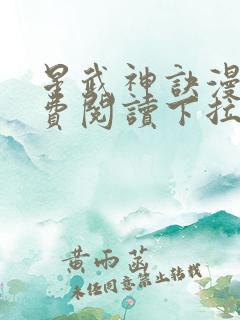 星武神訣漫
費閱讀下拉
黄雨菡
未经同意禁止转载